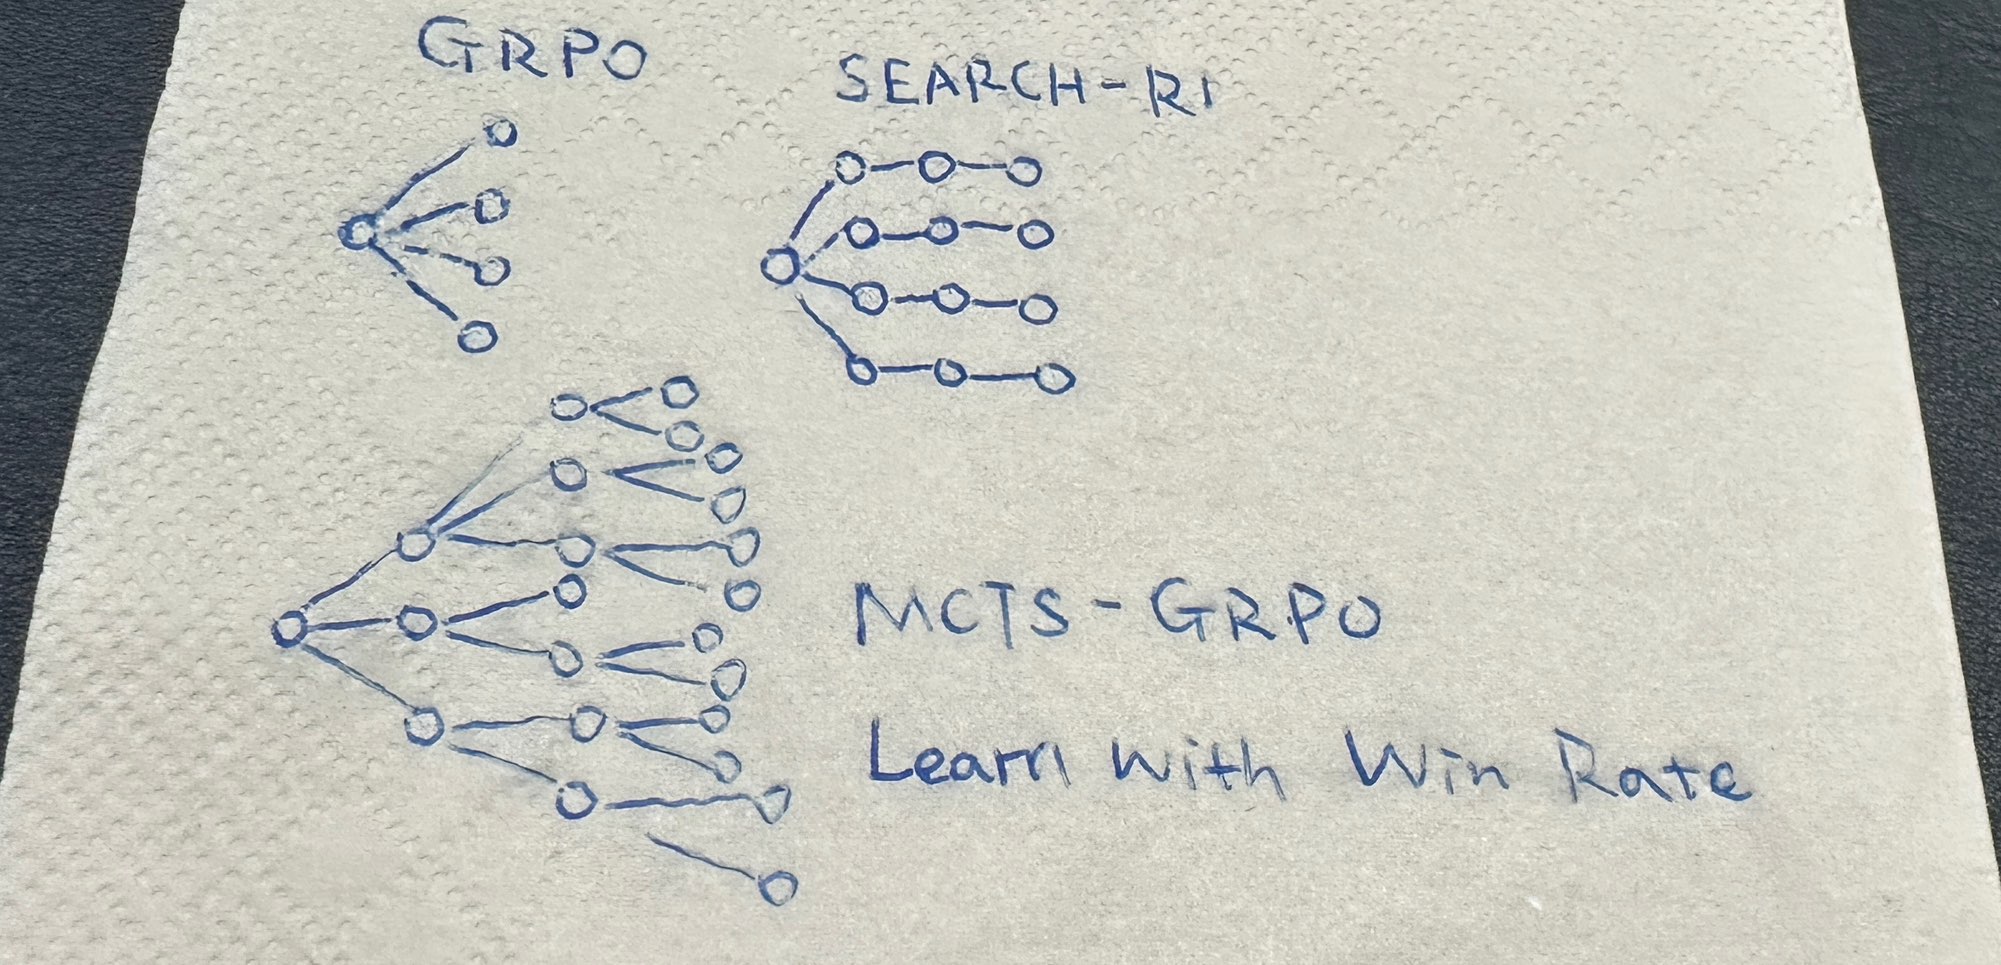 GRPO
SEARCH-R1
MCTS-GRPO
Learn with Win Rate